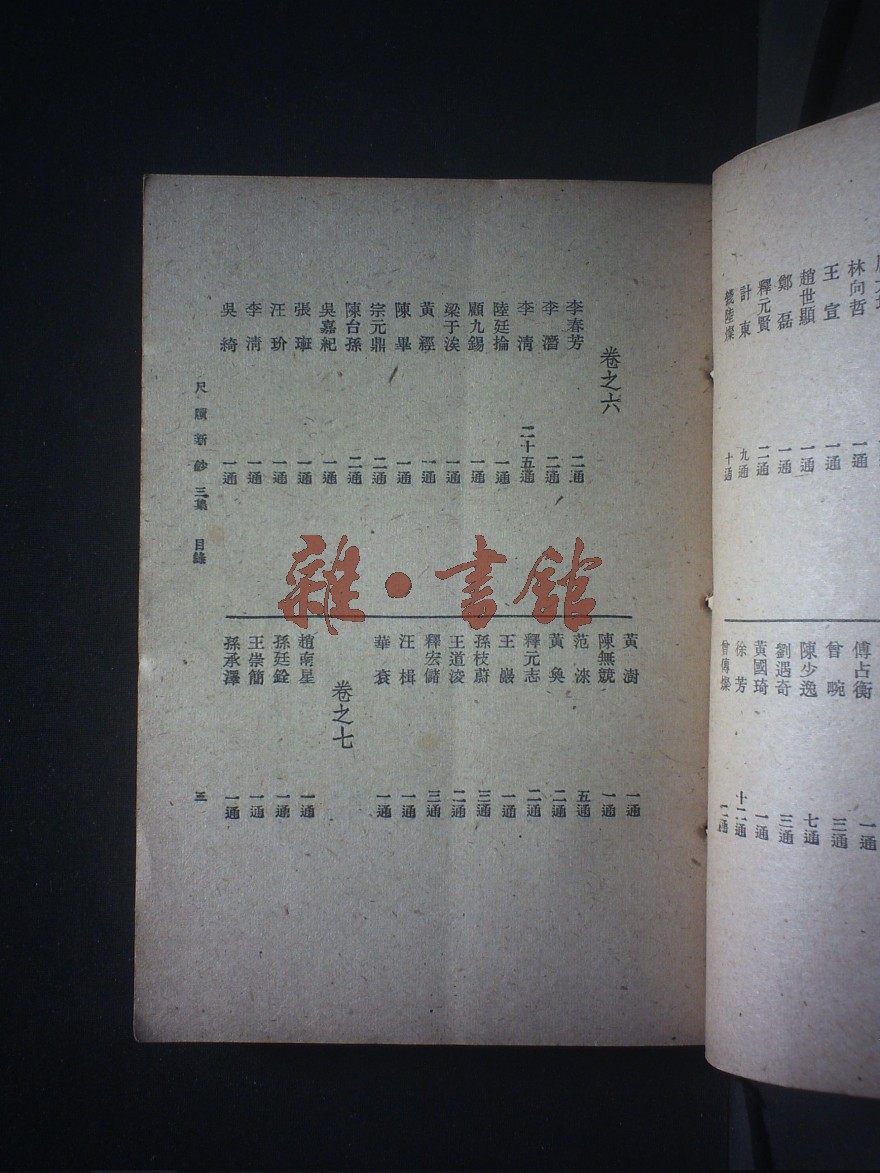 林向哲 一通
王宣 一通
趙世顯 一通
鄭磊 一通
釋元賢 二通
計東 九通
錢陸燦 十通
一通
傅占衡 一通
曾畹 三通
陳少逸 七通
劉遇奇 三通
黃國琦 一通
徐芳 十二通
曾傳燦 二通
卷之六
李春芳 二通
李潛 二通
李清 二十五通
陸廷掄 一通
顧九錫 一通
梁于涘 一通
黃經 一通
陳畢 一通
宗元鼎 二通
陳台孫 二通
吳嘉紀 一通
張琟 一通
汪玠 一通
李淸 一通
吳綺 一通
黃澍 一通
陳無競 一通
范淶 五通
黃奐 二通
釋元志 二通
王巖 一通
孫枝蔚 三通
王道浚 二通
釋宏儲 三通
汪楫 一通
華袞 一通
卷之七
趙南星 一通
孫廷銓 一通
王崇簡 一通
孫承澤 一通
尺牘新鈔三集 目錄
三
雜·書館